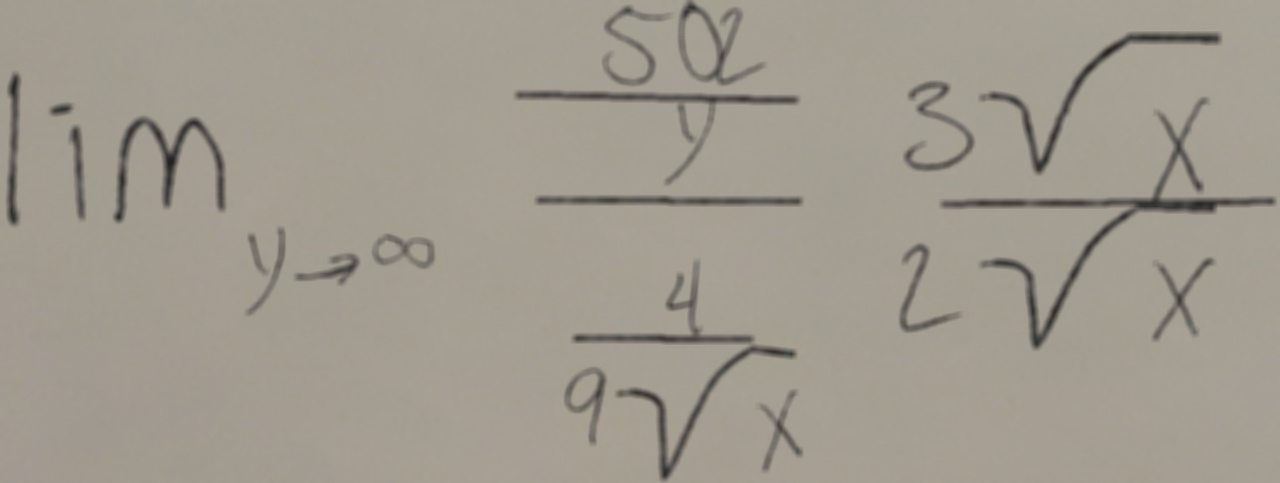 \lim_{y \to \infty} \frac{\frac{5\alpha}{y}}{\frac{4}{9\sqrt{x}}} \frac{3\sqrt{x}}{2\sqrt{x}}